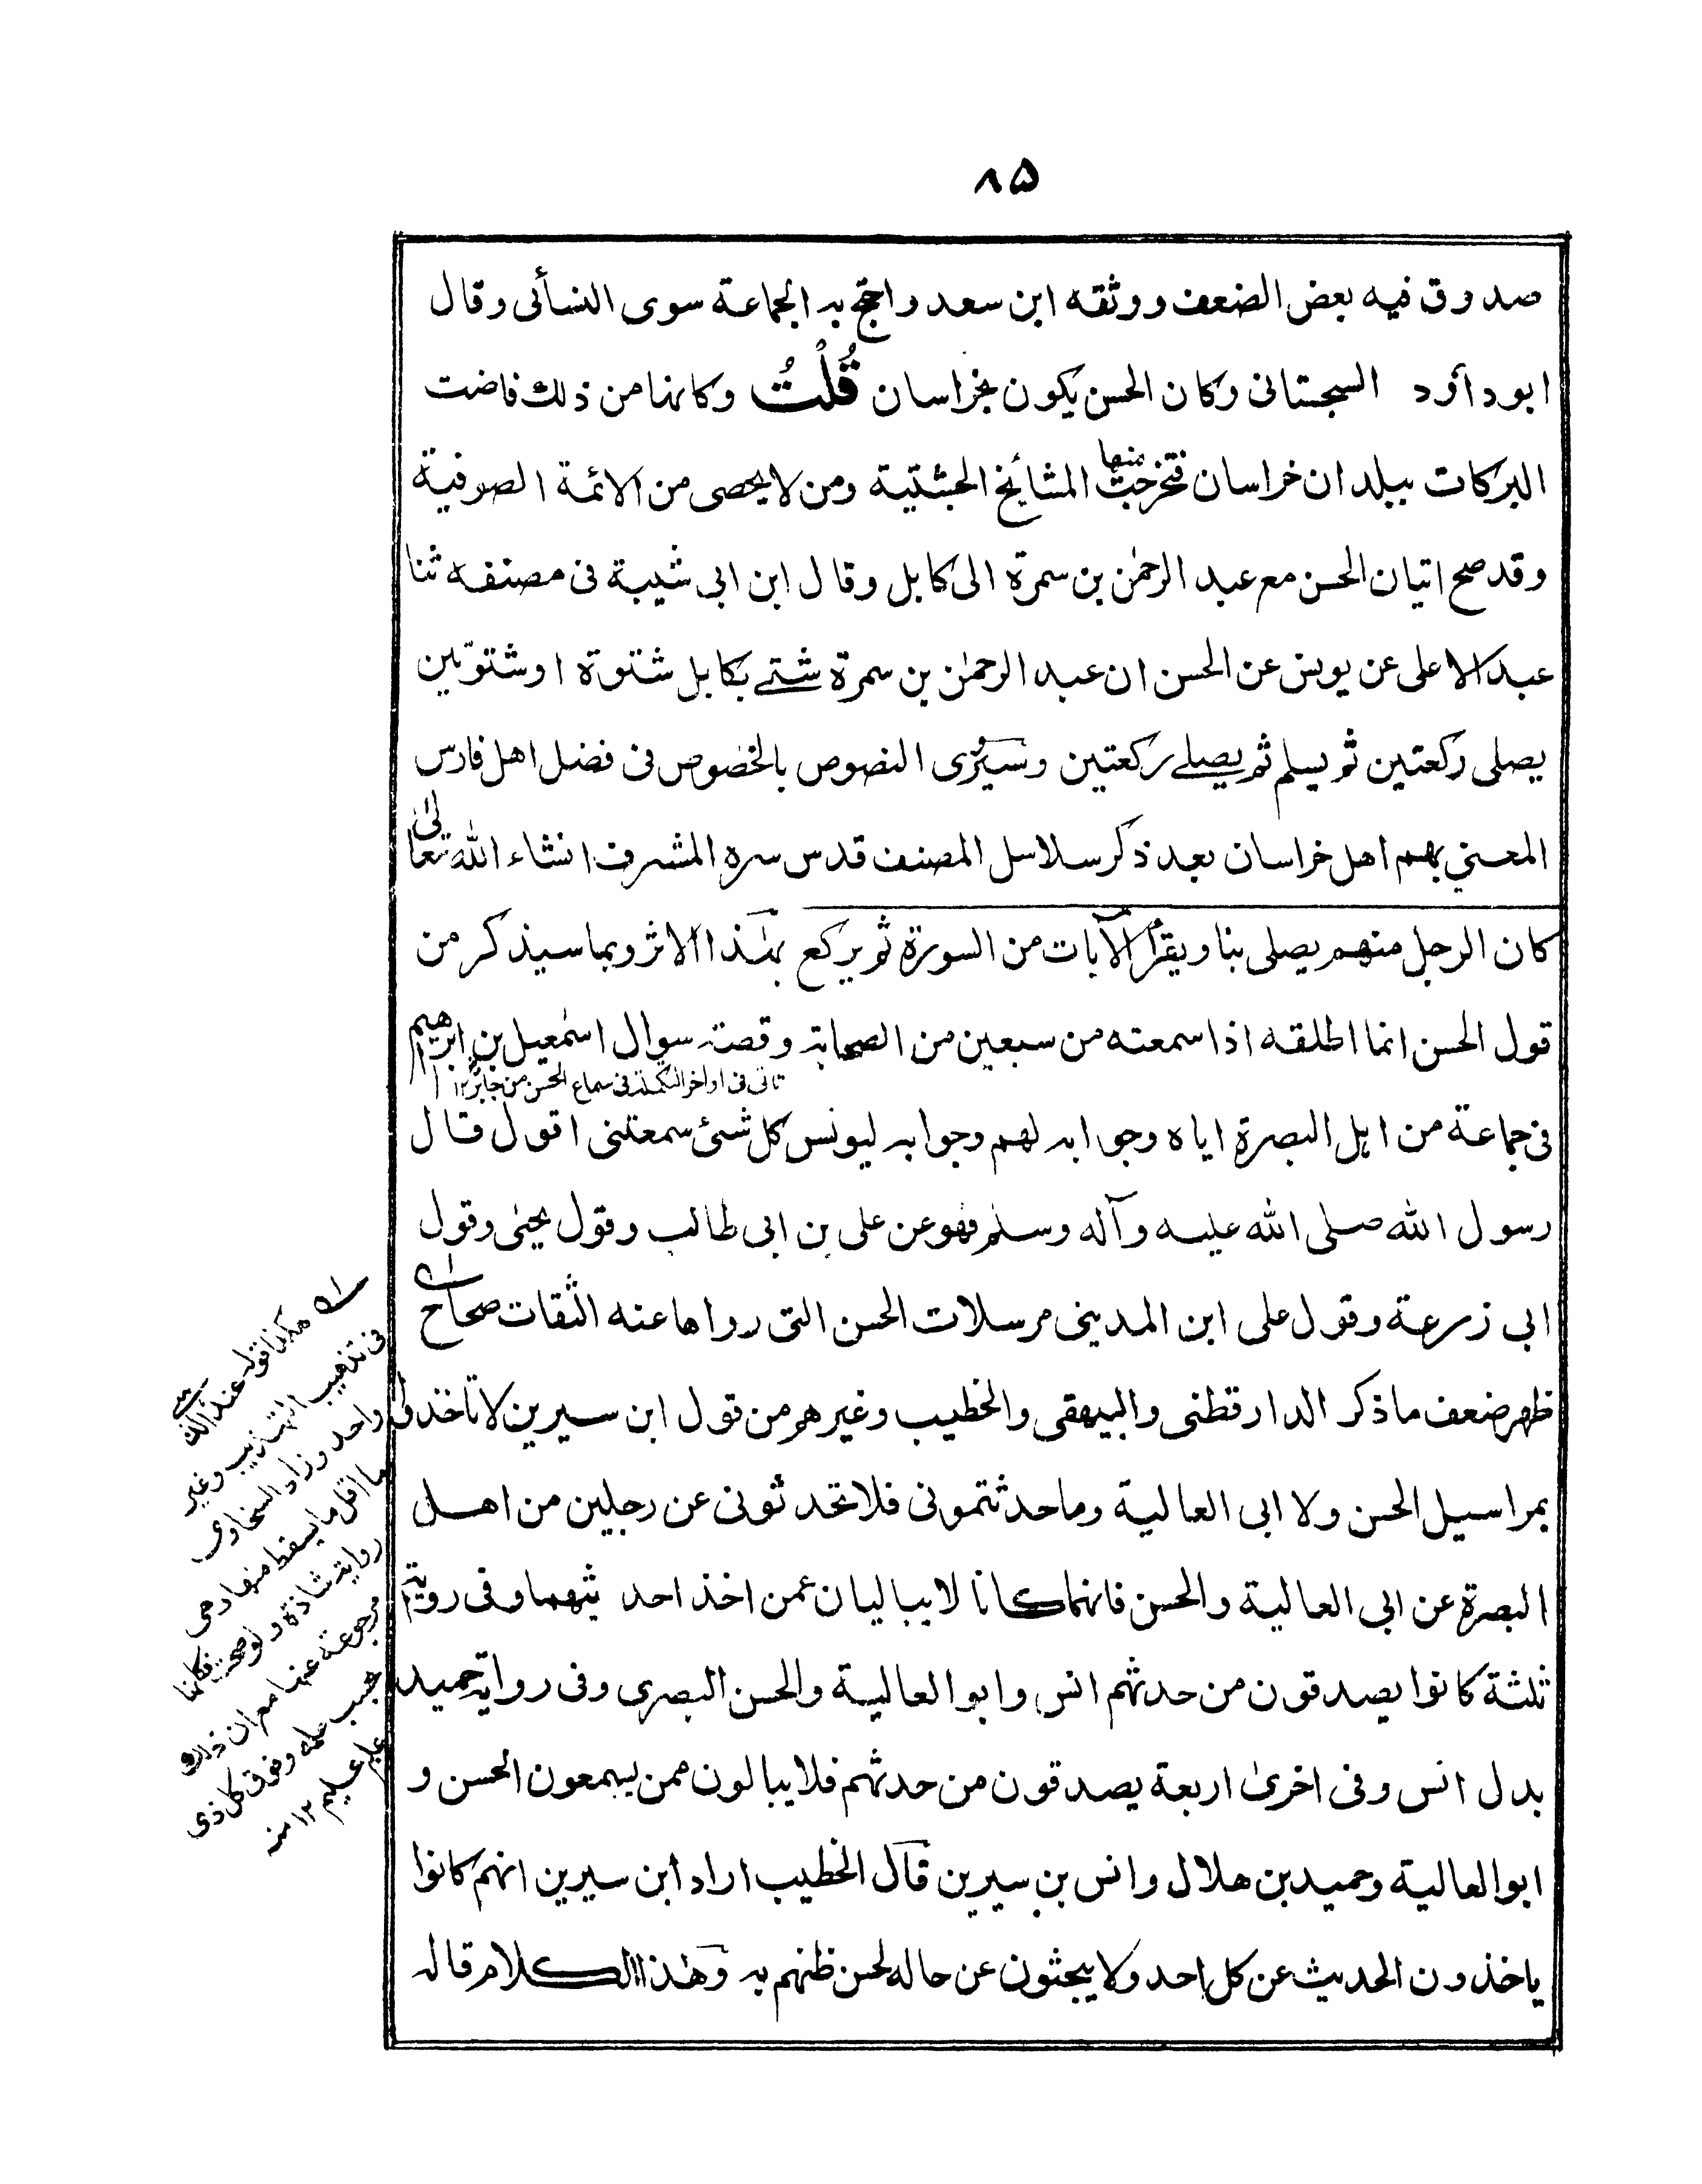 ۸۵
صدوق فيه بعض الضعف ووثقه ابن سعد واحتج به الجماعة سوى النسائى وقال
ابوداؤد السجستانى وكان الحسن يكون بخراسان قُلْتُ وكانها من ذلك فاضت
البركات ببلدان خراسان فتخرجت منها المشائخ الچشتية ومن لا يحصى من الائمة الصوفية
وقد صح اتيان الحسن مع عبد الرحمٰن بن سمرة الى كابل وقال ابن ابى شيبة فى مصنفه ثنا
عبد الاعلى عن يونس عن الحسن ان عبد الرحمٰن بن سمرة شتے بكابل شتوة او شتوتين
يصلى ركعتين ثم يسلم ثم يصلے ركعتين وسترى النصوص بالخصوص فى فضل اهل فارس
المعني بهم اهل خراسان بعد ذكر سلاسل المصنف قدس سره المشرف انشاء الله تعالىٰ
كان الرجل منهم يصلى بنا ويقرأ الآيات من السورة ثم يركع بهٰذا الاثر وبما سيذكر من
قول الحسن انما اطلقه اذا سمعته من سبعين من الصحابة وقصة سوال اسمٰعيل بن ابرهيم
تاتى فى اواخر التكملة فى سماع الحسن من جابر ۱۲
فى جماعة من اہل البصرة اياه وجوابه لهم وجوابه ليونس كل شئ سمعتنى اقول قال
رسول الله صلى الله عليه وآله وسلم فهو عن على بن ابى طالب وقول يحيٰى وقول
ابى زرعة وقول على ابن المدينى مرسلات الحسن التى رواها عنه الثقات صحاح
ظهر ضعف ما ذكر الدارقطنى والبيهقى والخطيب وغيرهم من قول ابن سيرين لا تاخذوا
بمراسيل الحسن ولا ابى العالية وما حدثتمونى فلا تحدثونى عن رجلين من اهل
البصرة عن ابى العالية والحسن فانهما كانا لا يباليان عمن اخذ احد يثهما وفى رواية
ثلثة كانوا يصدقون من حدثهم انس وابو العالية والحسن البصرى وفى رواية حميد
بدل انس وفى اخرىٰ اربعة يصدقون من حدثهم فلا يبالون ممن يسمعون الحسن و
ابوالعالية وحميد بن هلال وانس بن سيرين قال الخطيب اراد ابن سيرين انهم كانوا
ياخذون الحديث عن كل احد ولا يبحثون عن حاله لحسن ظنهم به وهٰذا الكلام قاله
هكذا قوله عند
فى تذهيب التهذيب وغير
واحد وزاد السخاوى
ما اقل ما يسقط منها وهى
رواية شاذة ولو صحت فكانها
مرجوعة عنها مع ان ذلك
حسب علمه وفوق كل ذى
علم عليم ۱۲ منه